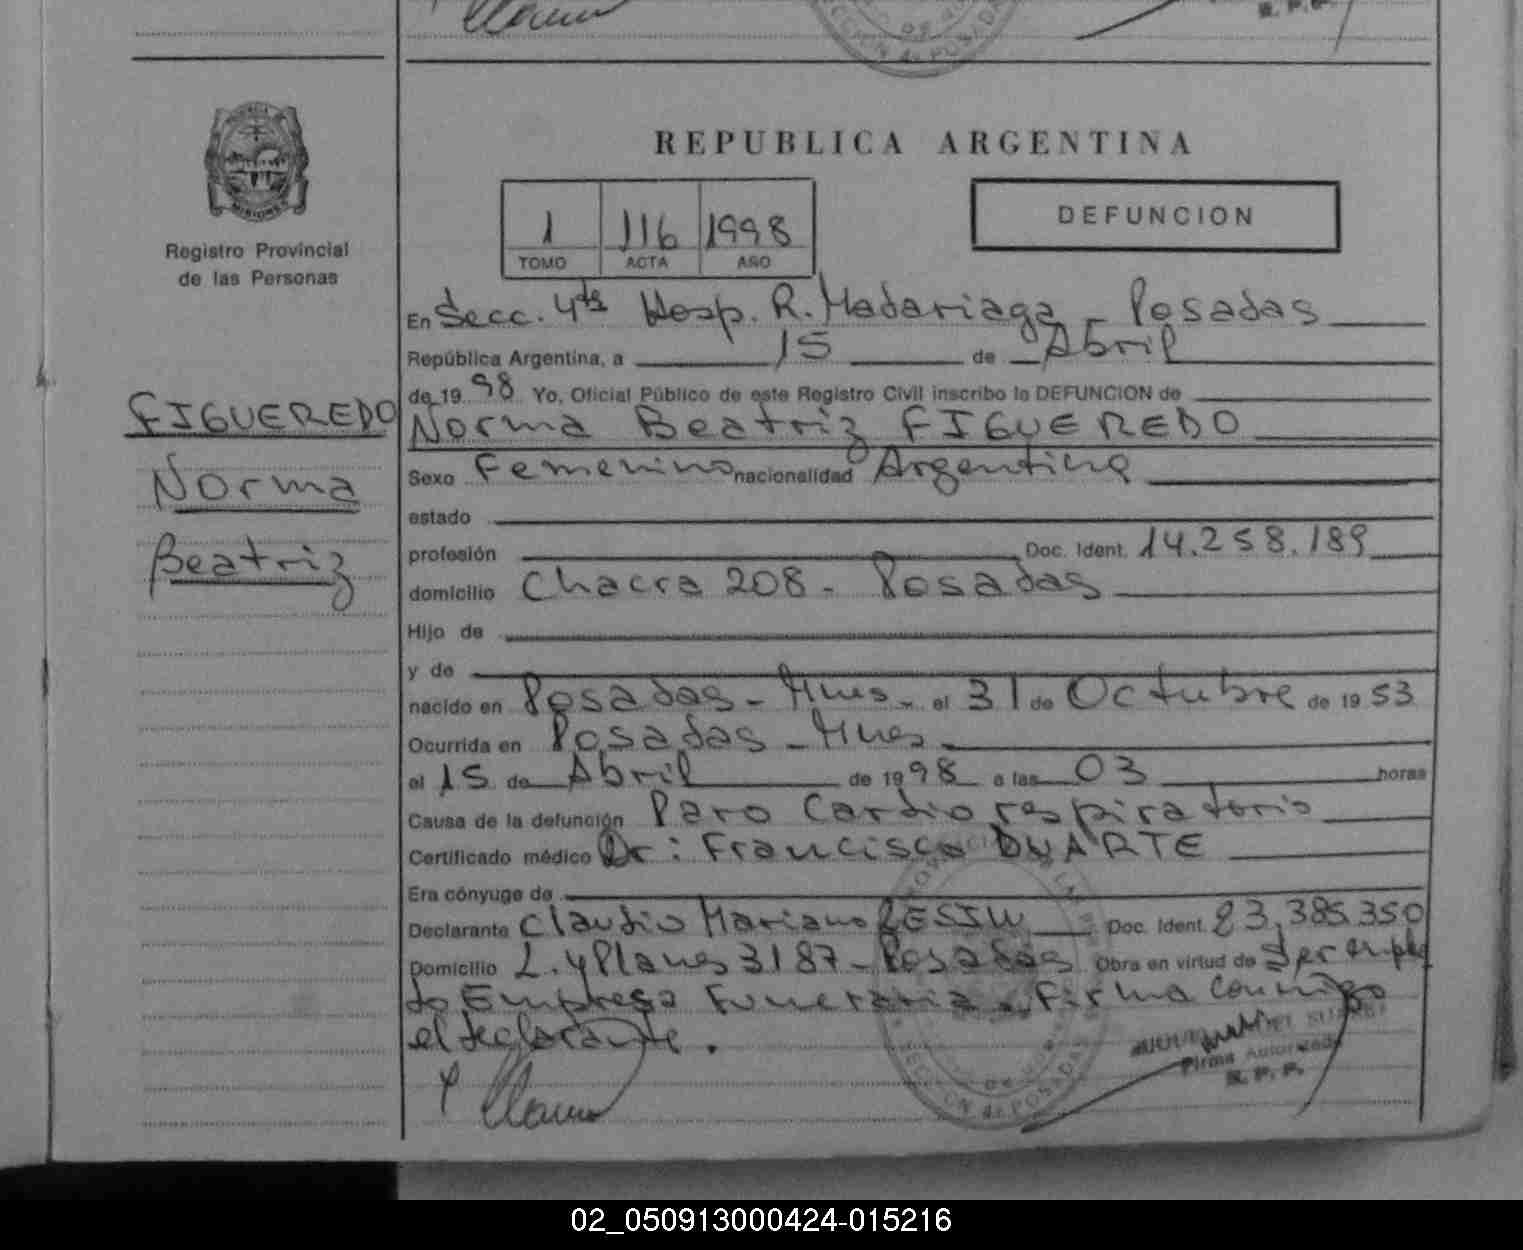 REPUBLICA ARGENTINA
MISIONES
Registro Provincial
de las Personas
1 116 1998
TOMO ACTA AÑO
DEFUNCION
En Secc. 4ta Hosp. R. Madariaga - Posadas
República Argentina, a 15 de Abril
de 1998 Yo, Oficial Público de este Registro Civil inscribo la DEFUNCION de
FIGUEREDO
Norma
Beatriz
Norma Beatriz FIGUEREDO
Sexo Femenino nacionalidad Argentina
estado
profesión Doc. Ident. 14.258.189
domicilio Chacra 208 - Posadas
Hijo de
y de
nacido en Posadas - Mnes - el 31 de Octubre de 1953
Ocurrida en Posadas - Mnes
el 15 de Abril de 1998 a las 03 horas
Causa de la defunción Paro Cardio respiratorio
Certificado médico Dr: Francisco DUARTE
Era cónyuge de
Declarante Claudio Mariano Doc. Ident. 23.385.350
Domicilio L. y Planes 3187 - Posadas Obra en virtud de Ser emplea
do Empresa Funeraria. Firma conmigo
el declarante.
Firma Autorizada
R. P. P.
SECCION de POSADAS
02_050913000424-015216